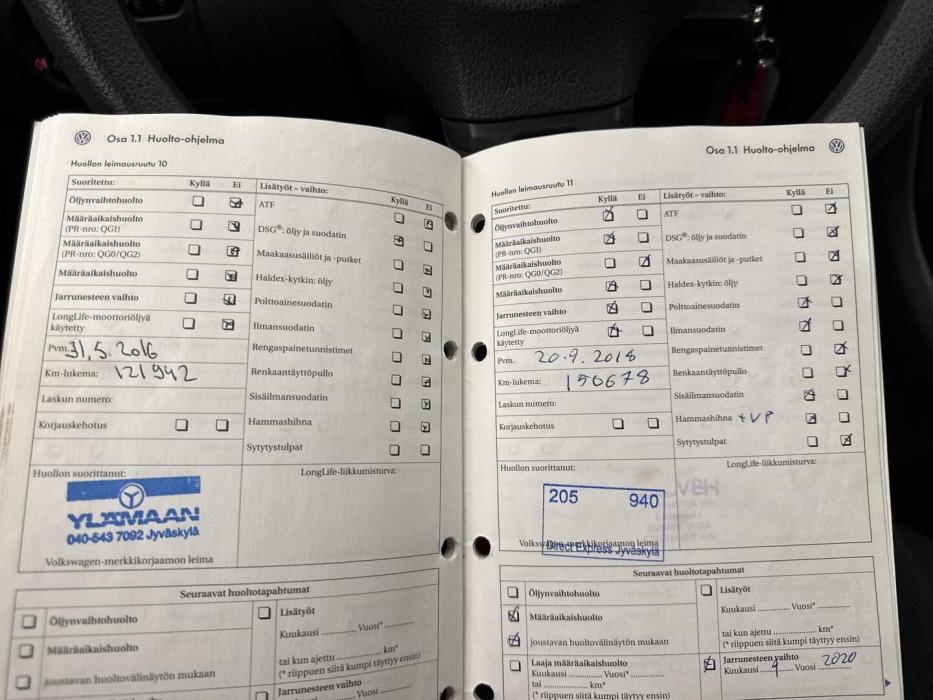 AIRBAG
Osa 1.1 Huolto-ohjelma
Huollon leimausruutu 10
Suoritettu: Kyllä Ei
Öljynvaihtohuolto
Määräaikaishuolto
(PR-nro: QG1)
Määräaikaishuolto
(PR-nro: QG0/QG2)
Määräaikaishuolto
Jarrunesteen vaihto
LongLife-moottoriöljyä
käytetty
Pvm. 31.5.2016
Km-lukema: 121942
Laskun numero:
Korjauskehotus
Lisätyöt – vaihto: Kyllä Ei
ATF
DSG®: öljy ja suodatin
Maakaasusäiliöt ja -putket
Haldex-kytkin: öljy
Polttoainesuodatin
Ilmansuodatin
Rengaspainetunnistimet
Renkaantäyttöpullo
Sisäilmansuodatin
Hammashihna
Sytytystulpat
Huollon suorittanut:
LongLife-liikkumisturva:
YLÄMAAN
040-543 7092 Jyväskylä
Volkswagen-merkkikorjaamon leima
Seuraavat huoltotapahtumat
Öljynvaihtohuolto
Määräaikaishuolto
joustavan huoltovälinäytön mukaan
Lisätyöt
Kuukausi .............. Vuosi* ..............
tai kun ajettu .............. km*
(* riippuen siitä kumpi täyttyy ensin)
Jarrunesteen vaihto
Kuukausi .............. Vuosi ..............
Osa 1.1 Huolto-ohjelma
Huollon leimausruutu 11
Suoritettu: Kyllä Ei
Öljynvaihtohuolto
Määräaikaishuolto
(PR-nro: QG1)
Määräaikaishuolto
(PR-nro: QG0/QG2)
Määräaikaishuolto
Jarrunesteen vaihto
LongLife-moottoriöljyä
käytetty
Pvm. 20.9.2018
Km-lukema: 150678
Laskun numero:
Korjauskehotus
Lisätyöt – vaihto: Kyllä Ei
ATF
DSG®: öljy ja suodatin
Maakaasusäiliöt ja -putket
Haldex-kytkin: öljy
Polttoainesuodatin
Ilmansuodatin
Rengaspainetunnistimet
Renkaantäyttöpullo
Sisäilmansuodatin
Hammashihna +VP
Sytytystulpat
Huollon suorittanut:
LongLife-liikkumisturva:
205 940
Volkswagen-merkkikorjaamon leima
Direct Express Jyväskylä
Seuraavat huoltotapahtumat
Öljynvaihtohuolto
Määräaikaishuolto
joustavan huoltovälinäytön mukaan
Laaja määräaikaishuolto
Kuukausi .............. Vuosi* ..............
tai .............. km*
(* riippuen siitä kumpi täyttyy ensin)
Lisätyöt
Kuukausi .............. Vuosi* ..............
tai kun ajettu .............. km*
(* riippuen siitä kumpi täyttyy ensin)
Jarrunesteen vaihto
Kuukausi ...... Vuosi 2020